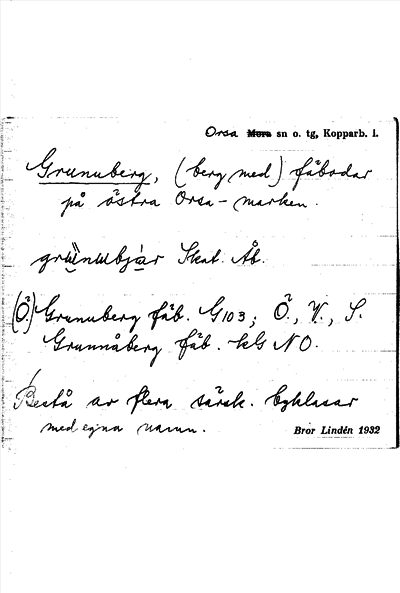 Orsa Mora sn o. tg, Kopparb. l.
Grunuberg, (berg med) fäbodar
på östra Orsa-marken.
Skat. Åb.
(Ö.) Grunuberg fäb. G103; Ö., V., S.
Grunnåberg fäb. kG NO.
Bestå av flera särsk. byklasar
med egna namn.
Bror Lindén 1932